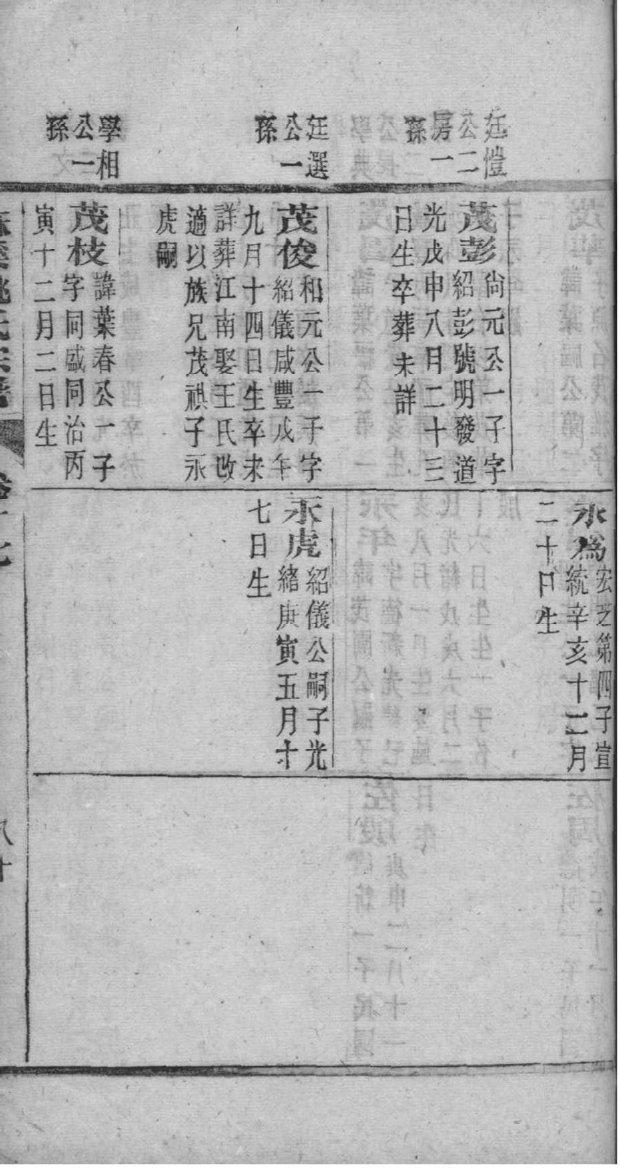 廷愷
公二
房一
孫
廷選
公一
孫
學相
公一
孫
茂彭
尙元公一子字
紹彭號明發道
光戊申八月二十三
日生卒葬未詳
茂俊
和元公一子字
紹儀咸豐戊午
九月十四日生卒未
詳葬江南娶王氏改
適以族兄茂祺子永
虎嗣
茂枝
諱葉春公一子
字同盛同治丙
寅十二月二日生
永爲
宏芝第四子宣
統辛亥十二月
二十日生
永虎
紹儀公嗣子光
緒庚寅五月十
七日生
姚氏宗譜
八十